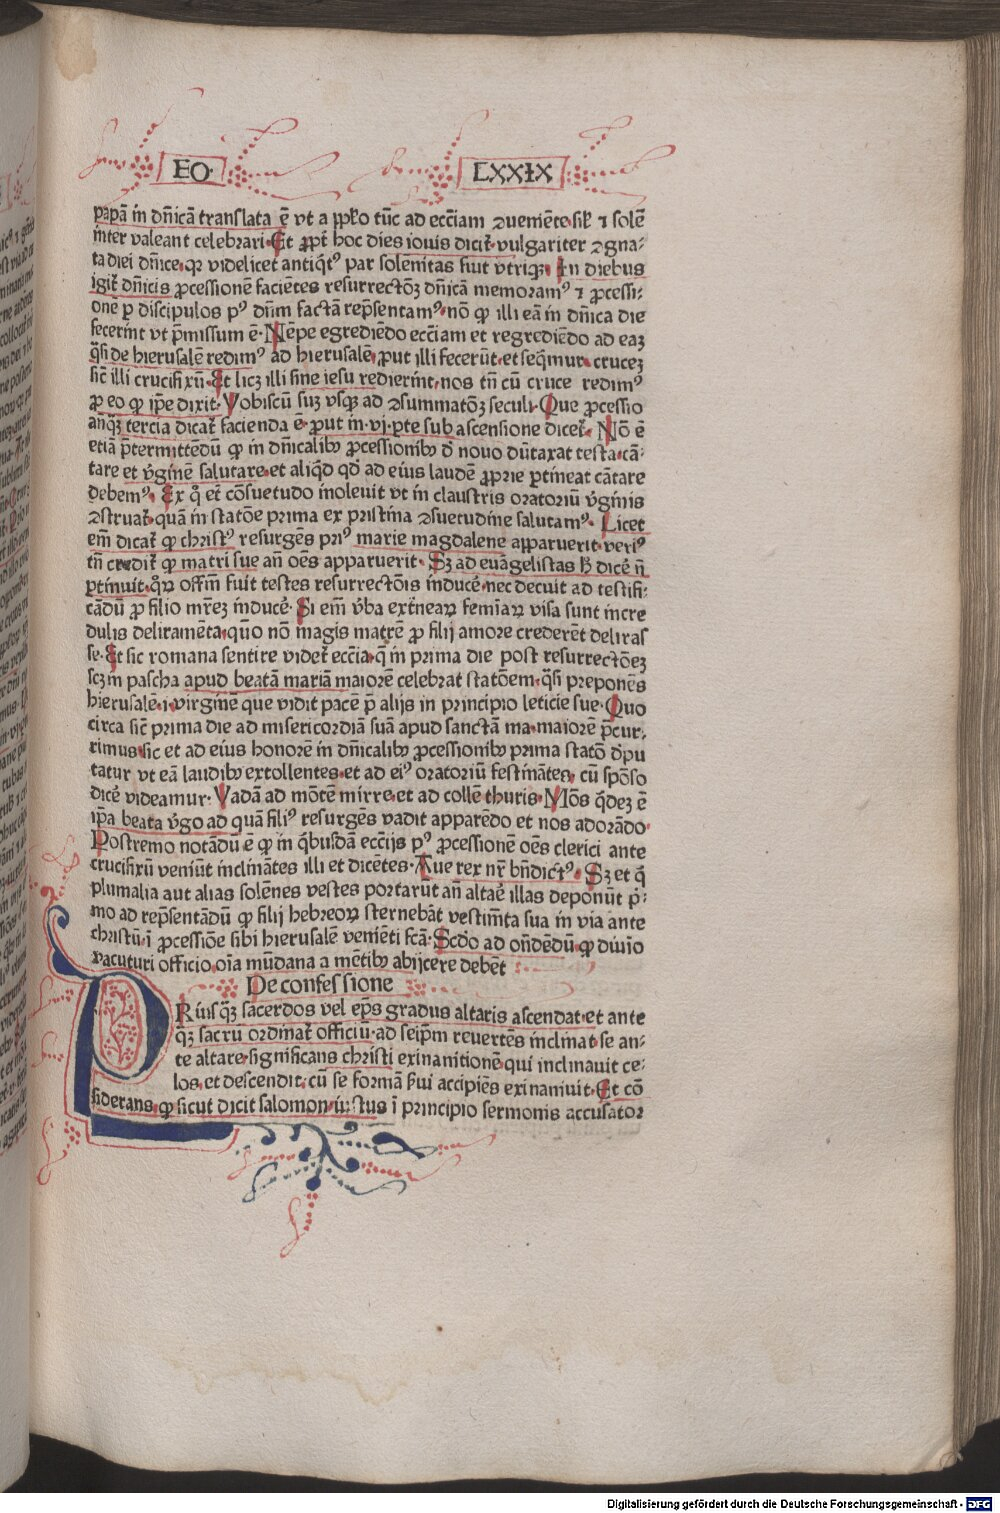 EO· LXXIX
papā in dn̄icā translata ē vt a ꝓplo tūc ad eccīam ꝯueniēte· sil̄r ⁊ solē
niter valeant celebrari· Et ꝓpt̄ hoc dies iouis dicit᷑ vulgariter ꝯgna⸗
ta diei dn̄ice· qꝛ videlicet antiq̄tꝰ par solēnitas fiut vtriqꝫ· In diebus
igit᷑ dn̄icis ꝓcessionē faciētes resurrectōꝫ dn̄icā memoramꝰ ⁊ ꝓcessi⸗
onē ꝑ discipulos pꝰ dn̄m factā rep̄sentamꝰ· nō ꝙ illi eā in dn̄ica die
fecerīt vt p̄missum ē· Nēpe egrediēdo eccīam et regrediēdo ad eaꝫ
q̄si de hierusalē redimꝰ ad hierusalē· ꝓut illi fecerūt· et seq̄mur crucez
sic̄ illi crucifixū· Et licꝫ illi sine iesu redierīt· nos tn̄ cū cruce redimꝰ
ꝓ eo ꝙ ip̄e dixit· Vobiscū suꝫ vsqꝫ ad ꝯsummatōꝫ seculi· Que ꝓcessio
anq̄ꝫ tercia dicat᷑ facienda ē· ꝓut in·vj·ꝑte sub ascensione dicet᷑· Nō ē
etiā p̄termittēdū ꝙ in dn̄icalibꝰ ꝓcessionibꝰ d̄ nouo dūtaxat testa· cā⸗
tare et v̄ginē salutare· et aliq̄d qd̄ ad eius laudē ꝓprie ꝑtineat cātare
debemꝰ· Ex q̄ et̄ cōsuetudo inoleuit vt in claustris oratoriū v̄ginis
ꝯstruat᷑· quā in statōe prima ex pristina ꝯsuetudine salutamꝰ· Licet
em̄ dicat᷑ ꝙ christꝰ resurgēs priꝰ marie magdalene apparuerit· veriꝰ
tn̄ credit᷑ ꝙ matri sue an̄ oēs apparuerit· Sꝫ ad euāgelistas h̄ dicē n̄
ꝑtinuit· qꝛ offm̄ fuit testes resurrectōis inducē· nec decuit ad testifi⸗
cādū ꝓ filio mr̄eꝫ inducē· Si em̄ v̄ba extraneaꝝ feminaꝝ visa sunt incre
dulis deliramēta· quo nō magis matrē ꝓ filij amore crederēt deliras
se· Et sic romana sentire videt᷑ eccīa· q̄ in prima die post resurrectōeꝫ
scꝫ in pascha apud beatā mariā maiorē celebrat statōem· q̄si preponēs
hierusalē·i·virginē que vidit pacē p̄ alijs in principio leticie sue· Quo
circa sic̄ prima die ad misericordiā suā apud sanctā ma·maiorē p̄cur⸗
rimus· sic et ad eius honorē in dn̄icalibꝰ ꝓcessionibꝰ prima statō d̄pu
tatur vt eā laudibꝰ extollentes· et ad eiꝰ oratoriū festinātes· cū spōso
dicē videamur· Vadā ad mōtē mirre· et ad collē thuris· Mōs q̄deꝫ ē
ip̄a beata v̄go ad quā filiꝰ resurgēs vadit apparēdo et nos adorādo·
Postremo notādū ē ꝙ in q̄busdā eccīijs pꝰ ꝓcessionē oēs clerici ante
crucifixū veniūt inclinātes illi et dicētes· Aue rex nr̄ bn̄dictꝰ· Sꝫ et q̄
plumalia aut alias solēnes vestes portarūt an̄ altaē illas deponūt pⁱ⸗
mo ad rep̄sentādū ꝙ filij hebreoꝝ sternebāt vestim̄ta sua in via ante
christū· ī ꝓcessiōe sibi hierusalē veniēti fcā· Scd̄o ad on̄dēdū ꝙ diuīo
vacuturi officio· oīa mūdana a mētibꝰ abijcere debēt
De confessione
PRiusqꝫ sacerdos vel ep̄s gradus altaris ascendat· et ante
qꝫ sacrū ordinat᷑ officiū· ad seip̄m reuertēs inclinat se an⸗
te altare· significans christi exinanitionē qui inclinauit ce⸗
los· et descendit· cū se formā ẜui accipiēs exinaniuit· Et cō
siderans ꝙ sicut dicit salomon· iustus ī principio sermonis accusator
Digitalisierung gefördert durch die Deutsche Forschungsgemeinschaft - DFG